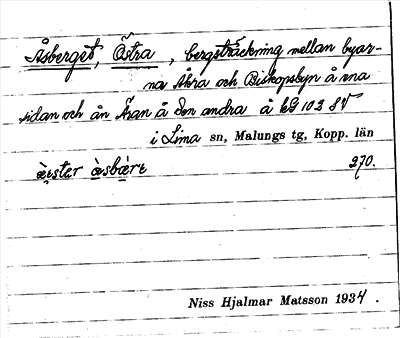 Åsberget, Östra, bergsträckning mellan byar-
na Åkra och Biskopsbyn å ena
sidan och ån Åran å den andra å kG 102 SV
i Lima sn, Malungs tg, Kopp. län
270.
Niss Hjalmar Matsson 1934.